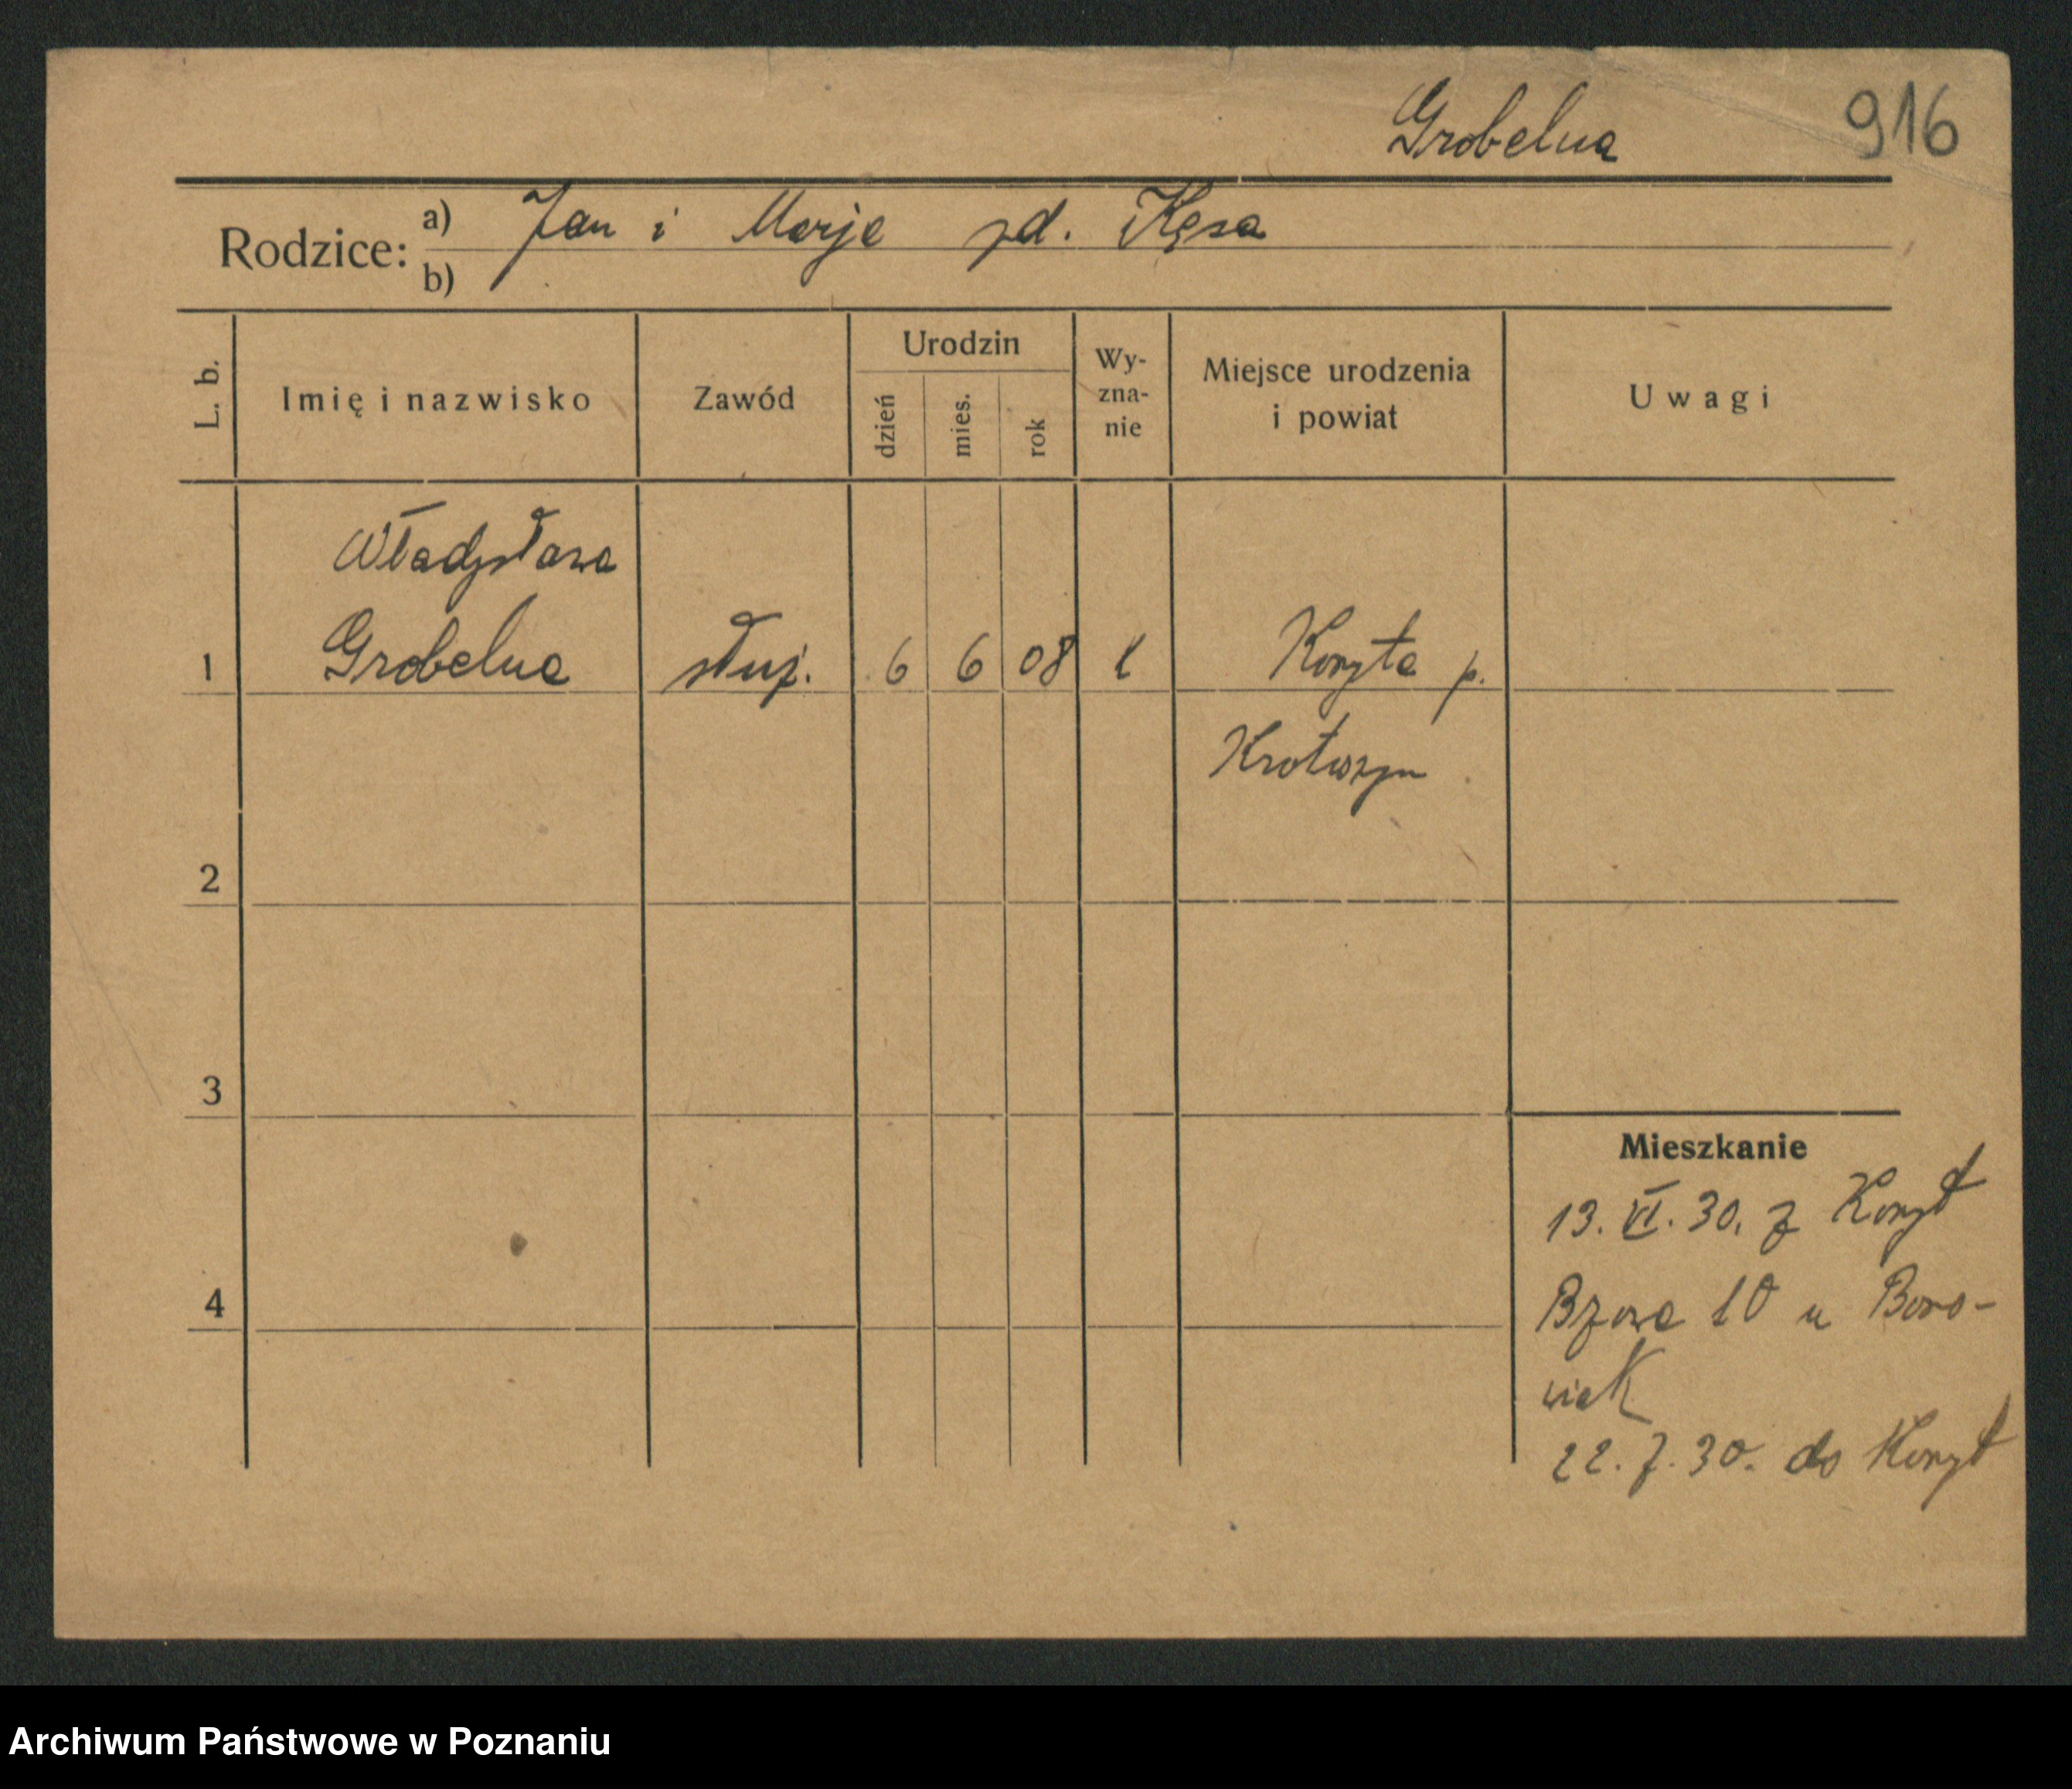 Grobelna 916
Rodzice: a) Jan i Marja zd. Kęsa
b)
L. b. Imię i nazwisko Zawód Urodzin dzień mies. rok Wy-zna-nie Miejsce urodzenia i powiat Uwagi
Władysława
1 Grobelna służ. 6 6 08 k Koryta p.
Krotoszyn
2
3
Mieszkanie
13. VI. 30. z Koryt
4 Bzowa 10 u Boro-
wiak
22. 7. 30. do Koryt
Archiwum Państwowe w Poznaniu